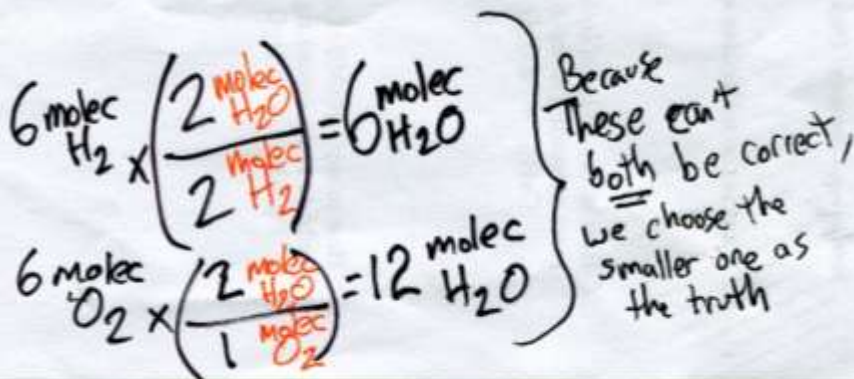 6 molec H₂ x (2 molec H₂O / 2 molec H₂) = 6 molec H₂O
6 molec O₂ x (2 molec H₂O / 1 molec O₂) = 12 molec H₂O
Because
These can't
both be correct,
we choose the
smaller one as
the truth